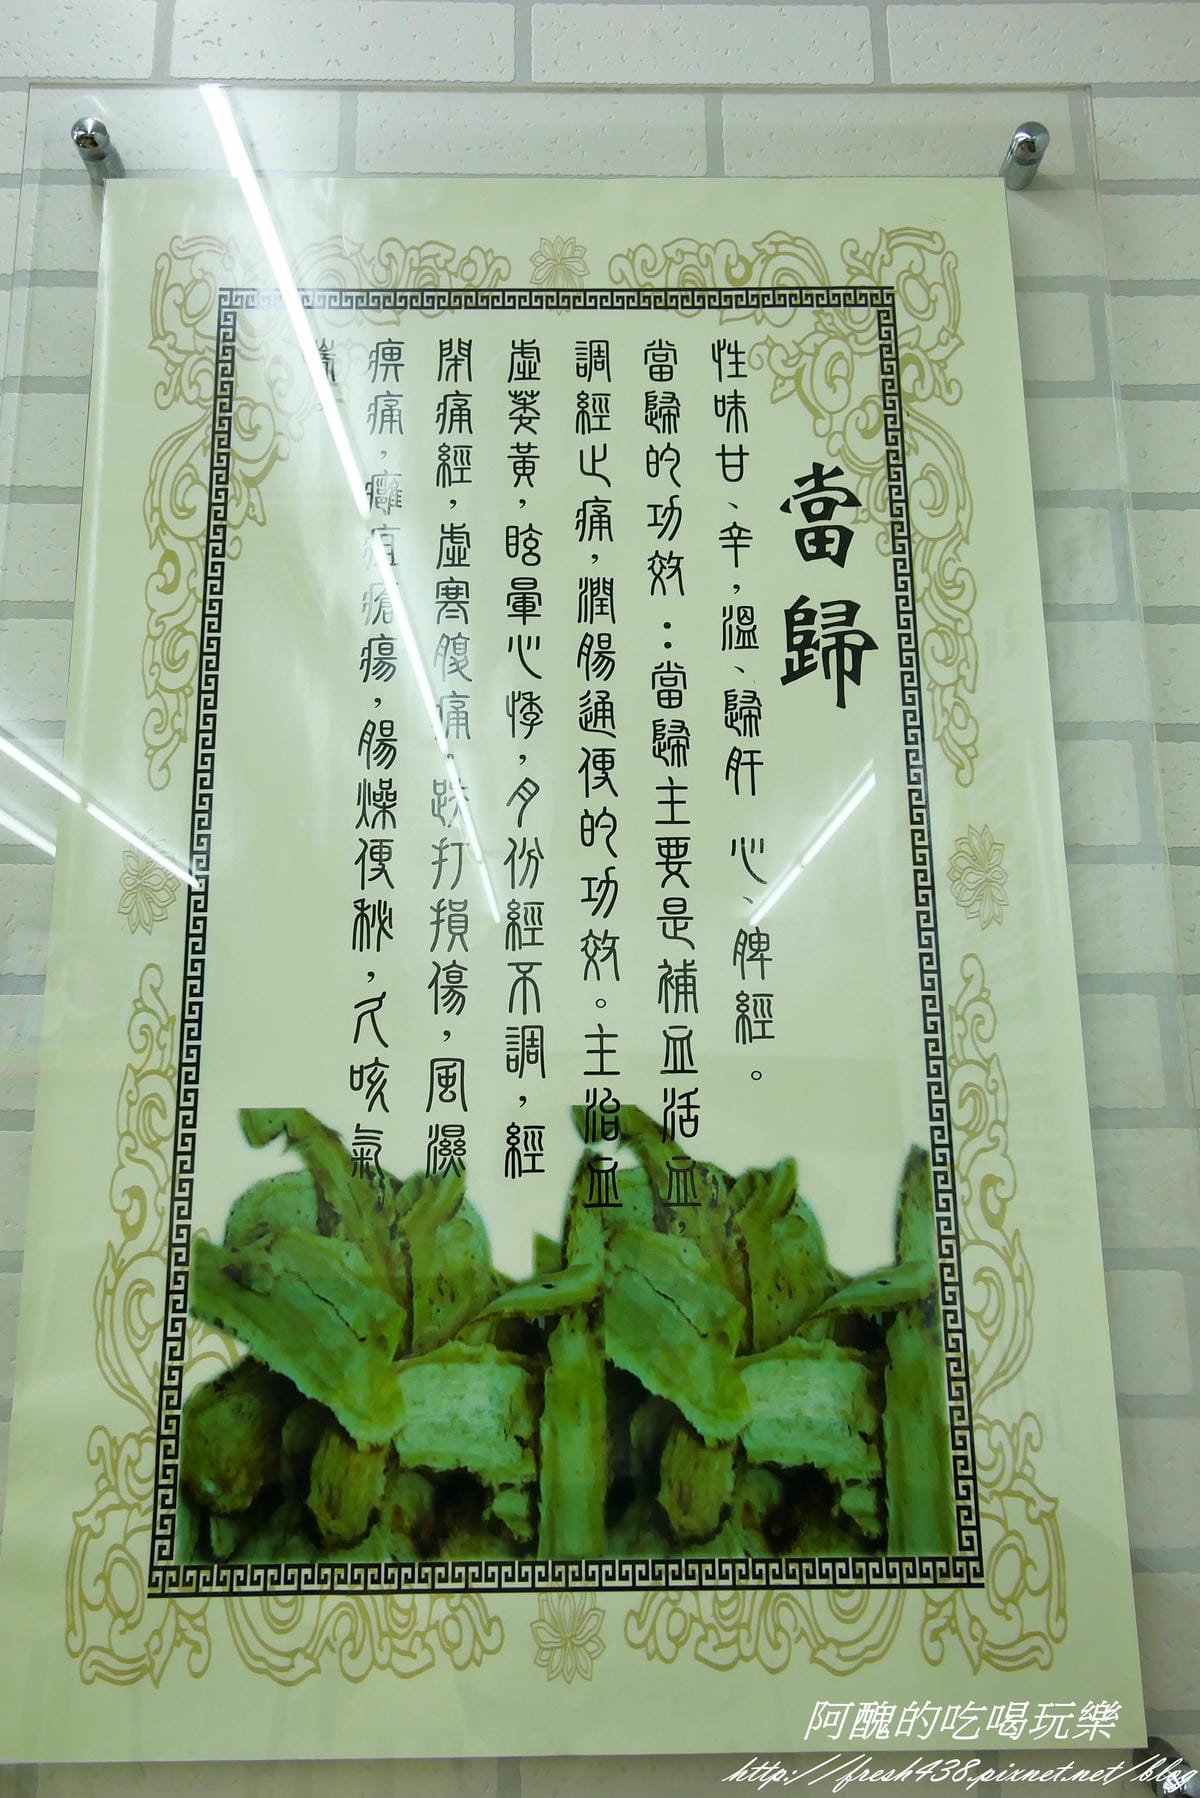 當歸
性味甘、辛，溫、歸肝 心、脾經。
當歸的功效：當歸主要是補血活血，
調經止痛，潤腸通便的功效。主治血
虛萎黃，眩暈心悸，月份經不調，經
閉痛經，虛寒腹痛，跌打損傷，風濕
痹痛，癰疽瘡瘍，腸燥便秘，久咳氣
喘
阿醜的吃喝玩樂
http://fresh438.pixnet.net/blog